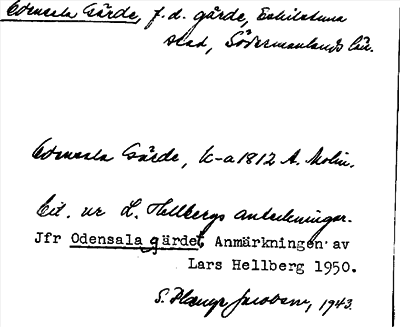 Odensala Gärde, f.d. gärde, Eskilstuna
stad, Södermanlands län.
Odensala Gärde, K-a 1812 A. Molin.
Cit. ur L. Hellbergs anteckningar.
Jfr Odensala gärdet, Anmärkningen av
Lars Hellberg 1950.
S. Jacobson, 1943.